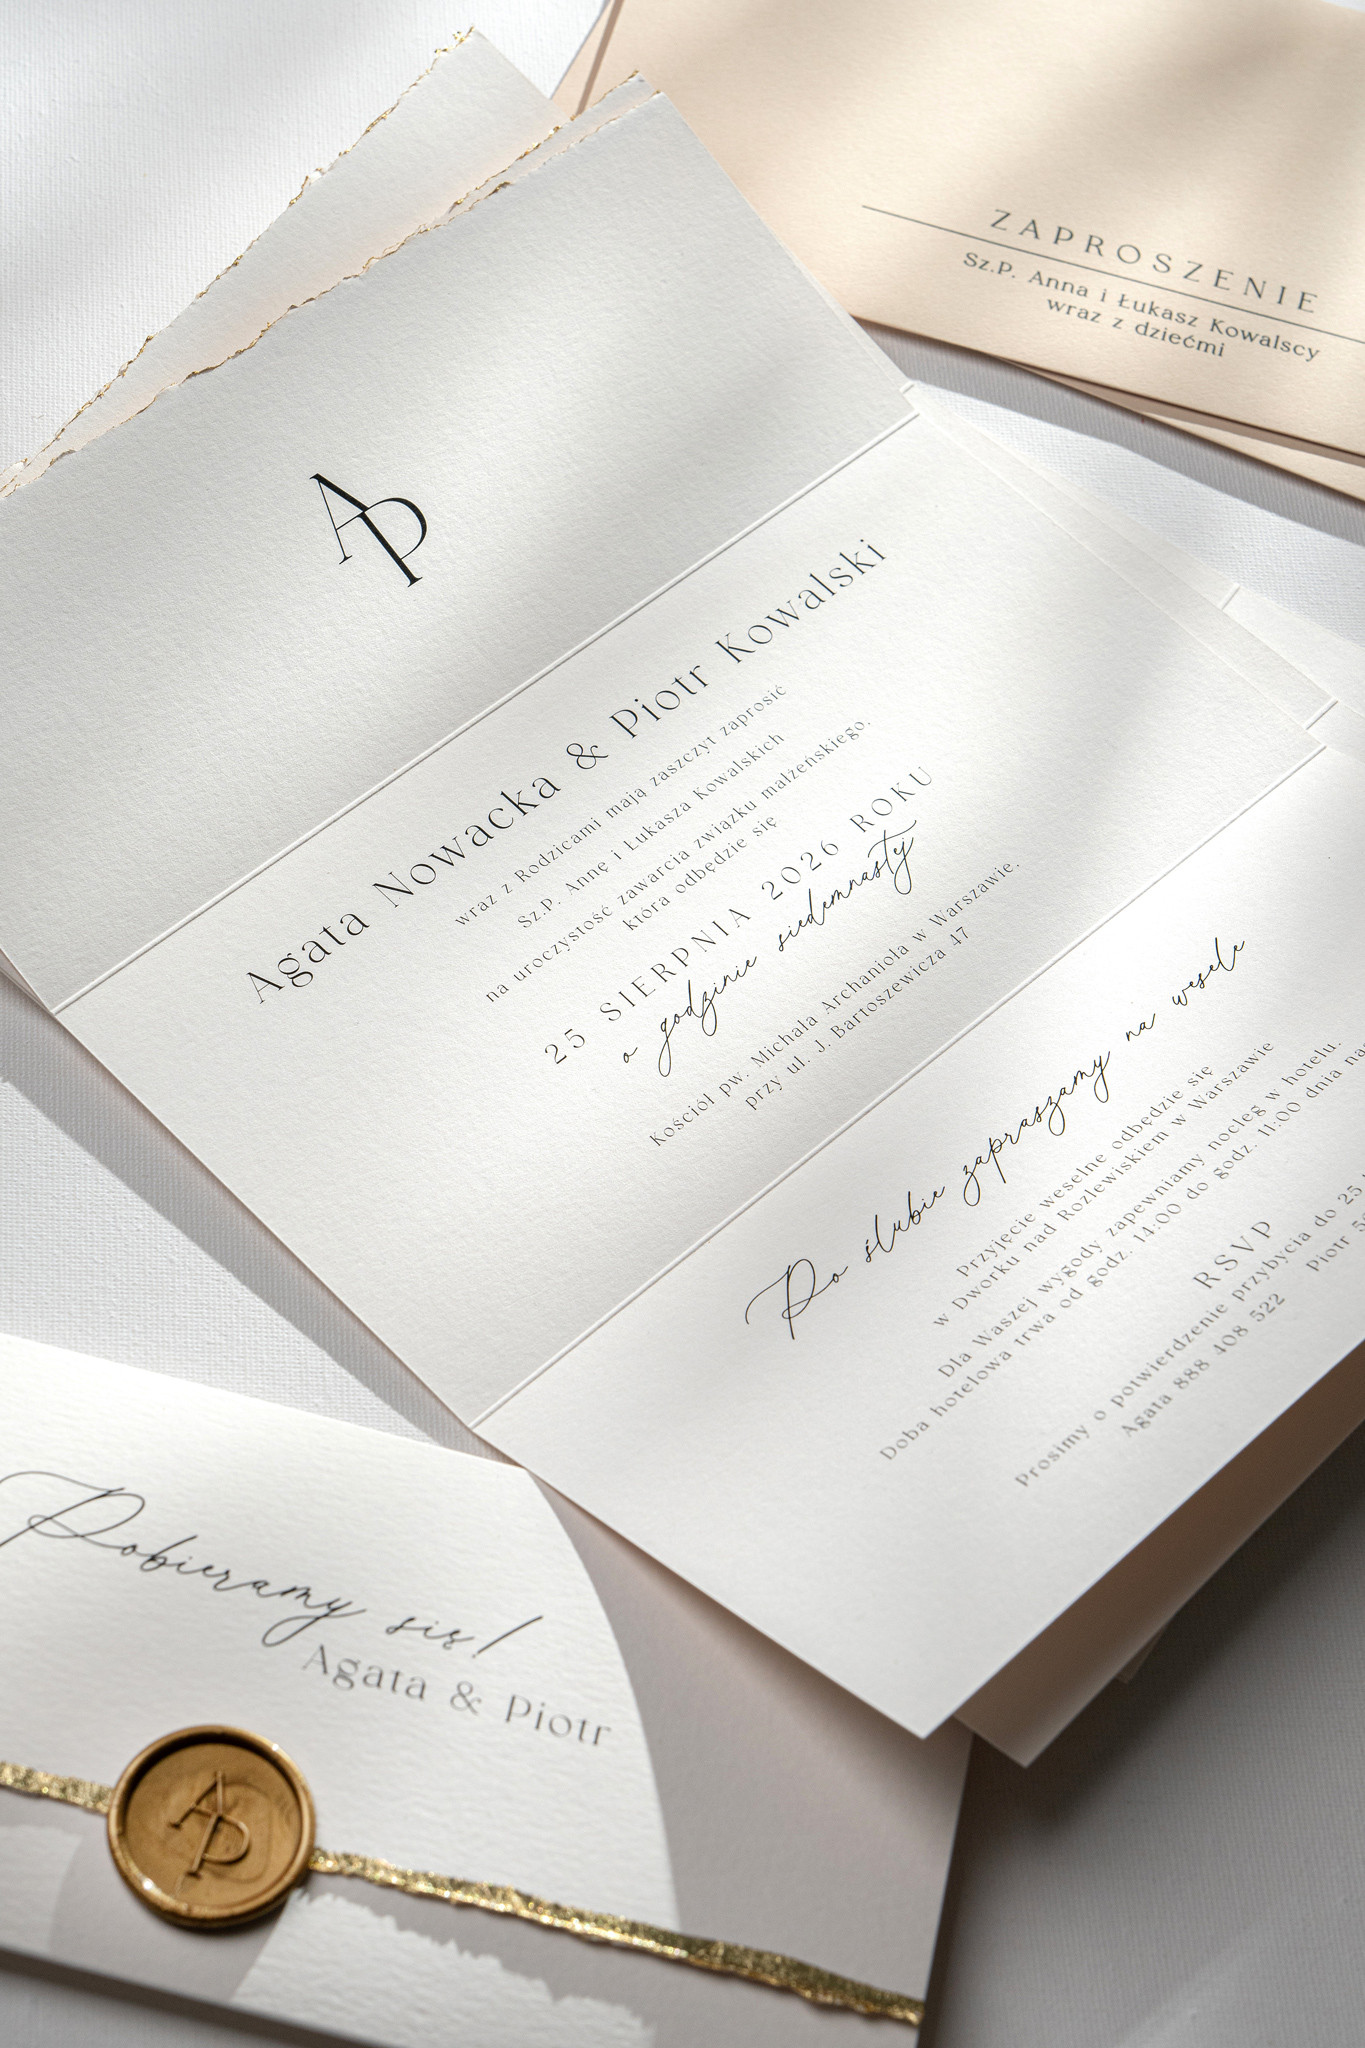 ZAPROSZENIE
Sz.P. Anna i Łukasz Kowalscy
wraz z dziećmi
AP
Agata Nowacka & Piotr Kowalski
wraz z Rodzicami mają zaszczyt zaprosić
Sz.P. Annę i Łukasza Kowalskich
na uroczystość zawarcia związku małżeńskiego,
która odbędzie się
25 SIERPNIA 2026 ROKU
o godzinie siedemnastej
Kościół pw. Michała Archanioła w Warszawie.
przy ul. J. Bartoszewicza 47
Po ślubie zapraszamy na wesele
Przyjęcie weselne odbędzie się
w Dworku nad Rozlewiskiem w Warszawie
Dla Waszej wygody zapewniamy nocleg w hotelu.
Doba hotelowa trwa od godz. 14:00 do godz. 11:00 dnia
RSVP
Prosimy o potwierdzenie przybycia do 25
Agata 888 408 522 Piotr
Pobieramy się!
Agata & Piotr
AP